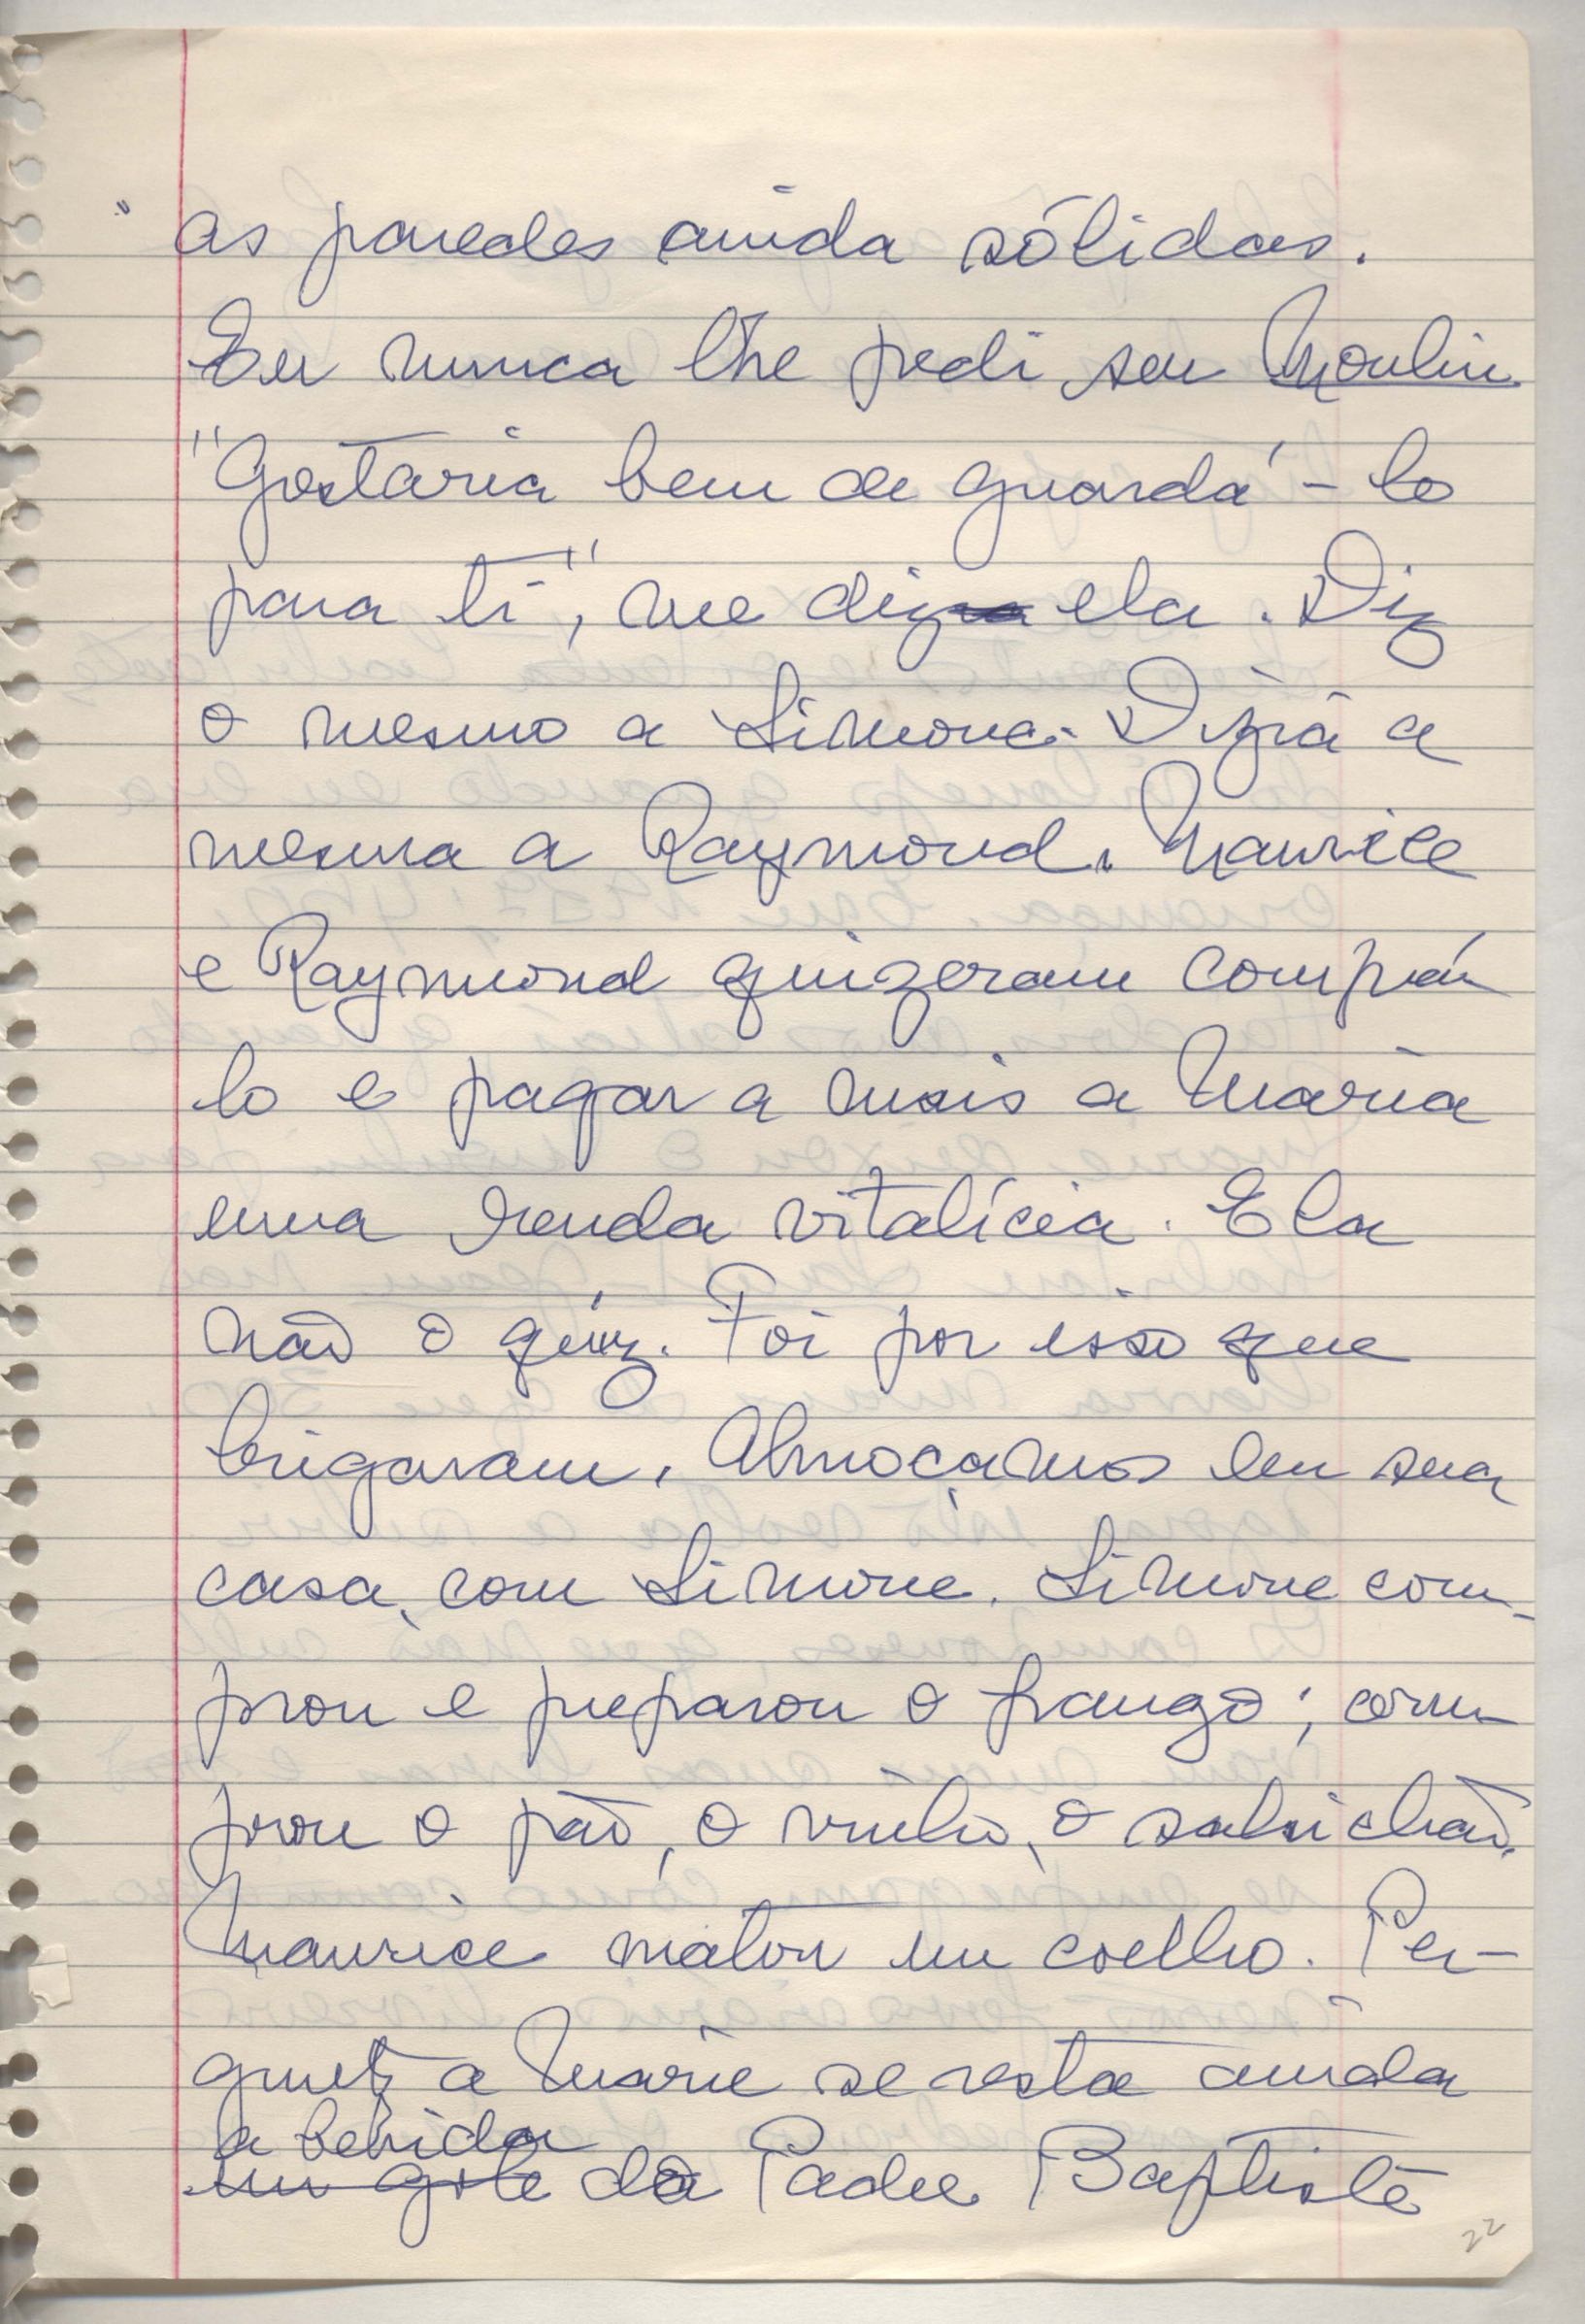 " as paredes ainda sólidas.
Eu nunca lhe pedi seu Moulin
"Gostaria bem de guardá-lo
para ti", me diz ela. Diz
o mesmo a Simone. Dizia a
mesma a Raymond. Maurice
e Raymond quizeram comprá
lo e pagar a mais a Maria
uma renda vitalícia. Ela
não o quiz. Foi por isso que
brigaram. Almoçamos em sua
casa, com Simone. Simone com-
prou e preparou o frango; com-
prou o pão, o vinho, o salsichão.
Maurice matou um coelho. Per-
gunto a Marie se resta ainda
a bebida
um gole do Padre Baptiste
22